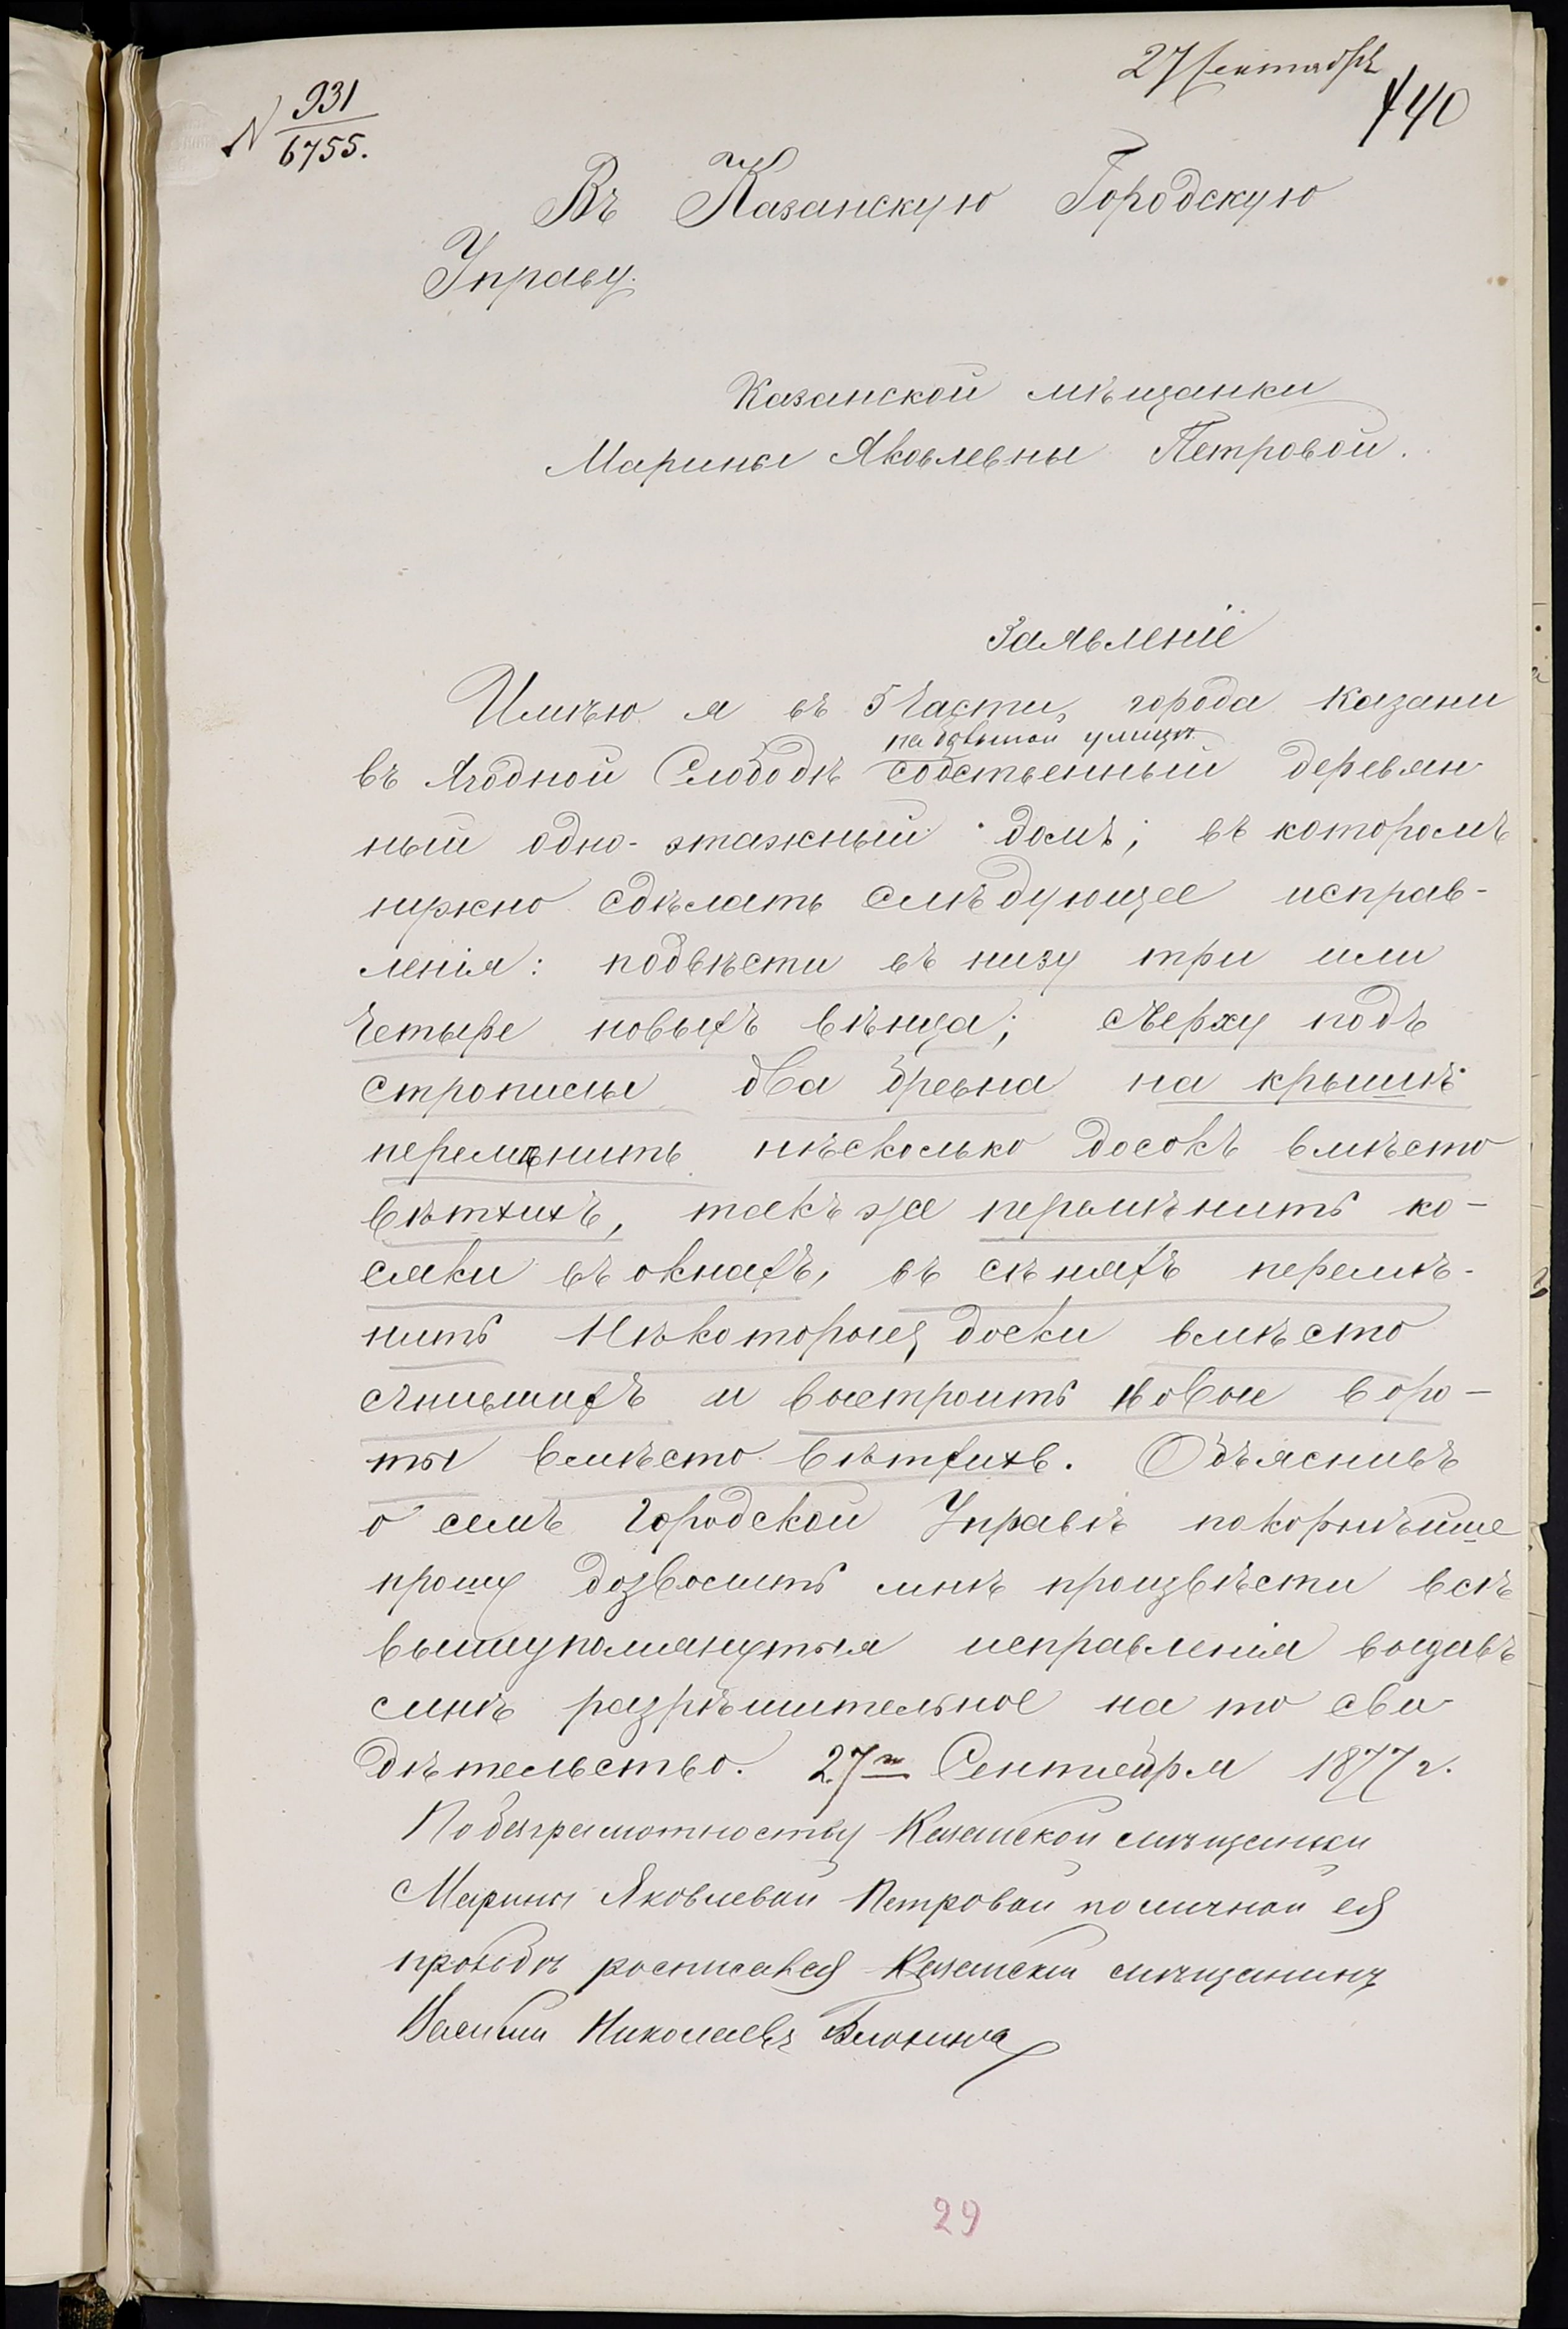 27 Сентября
440
N 931
6755.
Въ Казанскую Городскую
Управу.
Казанской мѣщанки
Марины Яковлевны Петровой.
Заявленіе
Имѣю я въ 5 части, города Казани
на большой улицѣ
въ Ягодной Слободѣ собственный деревян-
ный одно-этажный домъ; въ которомъ
нужно сдѣлать слѣдующее исправ-
ленія: подвѣсти въ низу три или
четыре новыхъ вѣнца; сверху подъ
стропилы два бревна на крышѣ
перемѣнить нѣсколько досокъ вмѣсто
вѣтхихъ, такъ же перемѣнить ко-
сяки въ окнахъ, въ сѣняхъ перемѣ-
нить Нѣкоторыя доски вмѣсто
сгнившихъ и выстроить новыя воро-
ты вмѣсто вѣтхихъ. Объяснивъ
о семъ Городской Управѣ покорнѣйше
прошу дозволить мнѣ произвѣсти всѣ
вышеупомянутыя исправленія выдавъ
мнѣ разрѣшительное на то сви-
дѣтельство. 27го Сентября 1877 г.
По безграмотноству Казанской мѣщанки
Марины Яковлевой Петровой по личной ея
прозьбѣ росписался Казанскій мѣщанинъ
Василій Николаевъ
29